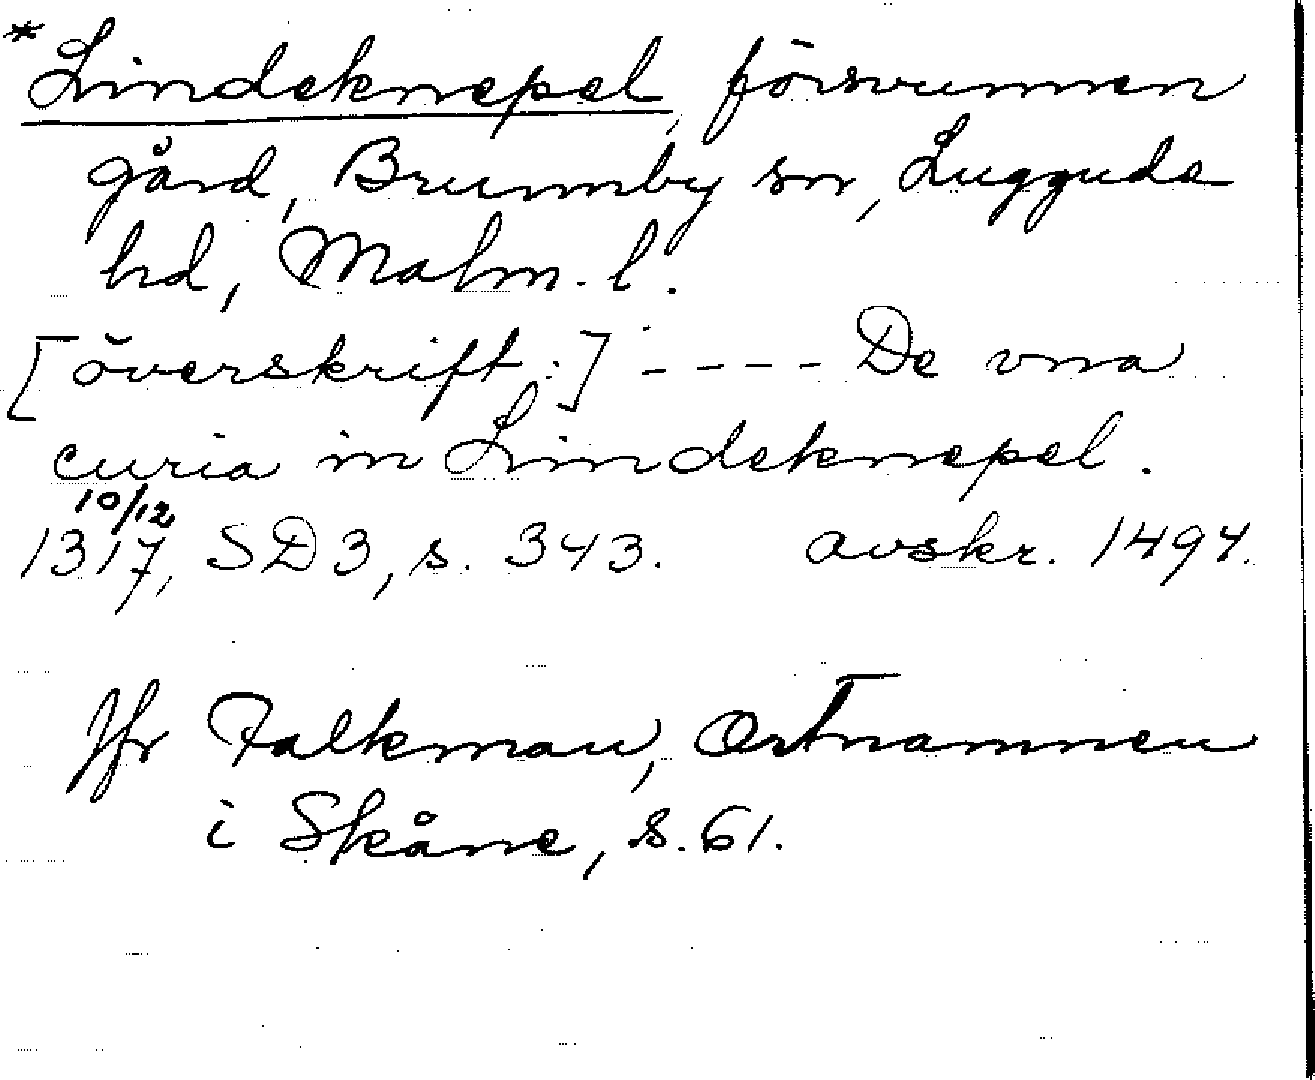 *Lindeknepel, försvunnen
gård, Brunnby sn, Luggude
hd, Malm. l.
[överskrift:] ---- De vna
curia in Lindeknepel.
10/12
1317, SD 3, s. 343. avskr. 1494.
Jfr Falkman, Ortnamnen
i Skåne, s. 61.